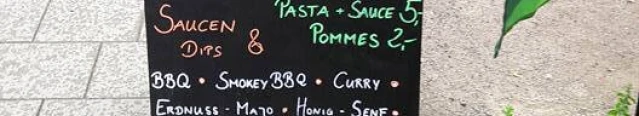 PASTA + SAUCE 5,-
POMMES 2,-
SAUCEN
& DIPS
BBQ • SMOKEY BBQ • CURRY •
ERDNUSS - MAYO • HONIG - SENF •